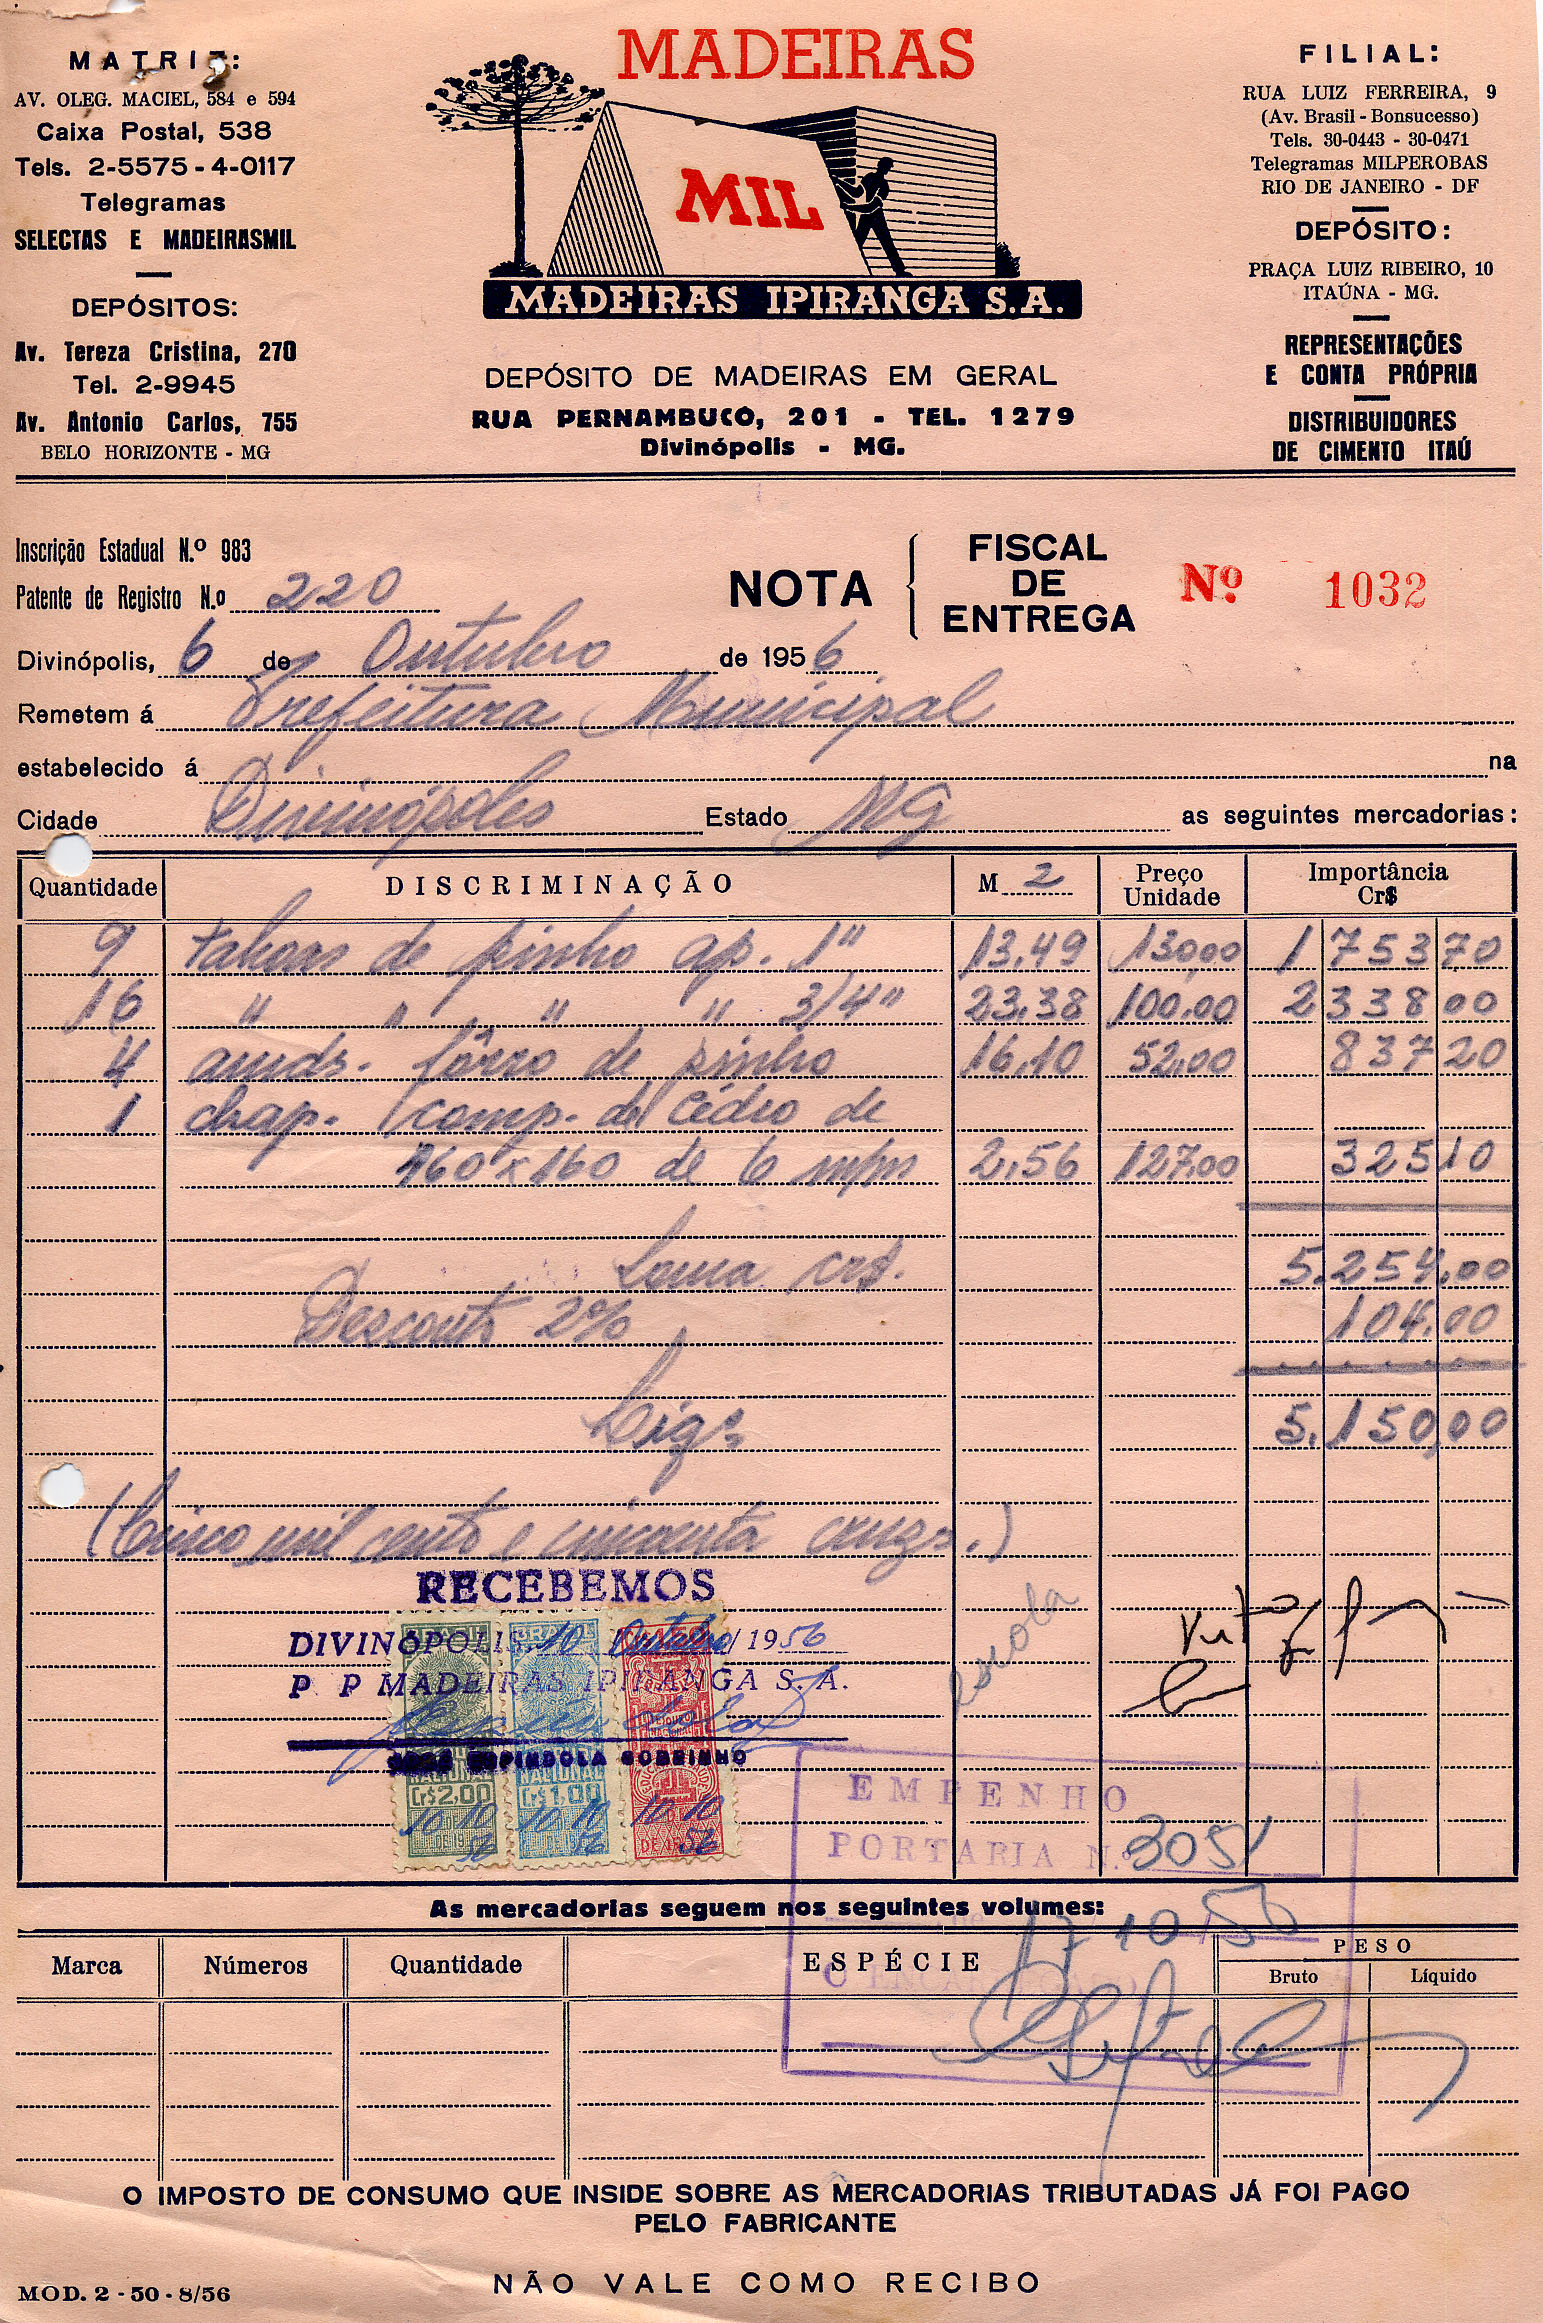 MATRIZ:
AV. OLEG. MACIEL, 584 e 594
Caixa Postal, 538
Tels. 2-5575 - 4-0117
Telegramas
SELECTAS E MADEIRASMIL
DEPÓSITOS:
Av. Tereza Cristina, 270
Tel. 2-9945
Av. Antonio Carlos, 755
BELO HORIZONTE - MG
MADEIRAS
MIL
MADEIRAS IPIRANGA S.A.
DEPÓSITO DE MADEIRAS EM GERAL
RUA PERNAMBUCO, 201 - TEL. 1279
Divinópolis - MG.
FILIAL:
RUA LUIZ FERREIRA, 9
(Av. Brasil - Bonsucesso)
Tels. 30-0443 - 30-0471
Telegramas MILPEROBAS
RIO DE JANEIRO - DF
DEPÓSITO:
PRAÇA LUIZ RIBEIRO, 10
ITAÚNA - MG.
REPRESENTAÇÕES
E CONTA PRÓPRIA
DISTRIBUIDORES
DE CIMENTO ITAÚ
Inscrição Estadual N.º 983
Patente de Registro N.o 220
NOTA FISCAL DE ENTREGA
Nº 1032
Divinópolis, 6 de Outubro de 1956
Remetem á Prefeitura Municipal
estabelecido á na
Cidade Divinópoles Estado MG as seguintes mercadorias:
Quantidade DISCRIMINAÇÃO M 2 Preço Unidade Importância Cr$
9 taboas de pinho ap. 1" 13,49 130,00 1 753 70
16 " " " " 3/4" 23,38 100,00 2 338 00
4 amds. fôrro de pinho 16,10 52,00 837 20
1 chap. comp. de Cedro de
160 x 160 de 6 m/m 2,56 127,00 325 10
Soma crs. 5.254,00
Desconto 2% 104,00
Liqº 5.150,00
(Cinco mil cento e cincoenta cruzs.)
RECEBEMOS
DIVINÓPOLIS, 10 Outubro / 1956
P P MADEIRAS IPIRANGA S. A.
JOSÉ ESPINDOLA SOBRINHO
BRASIL
NACIONAL
Cr$2,00
Cr$1,00
10.10
56
10.10
56
10.10
56
escola
EMPENHO
PORTARIA N.º 3051
17 10 56
As mercadorias seguem nos seguintes volumes:
Marca Números Quantidade ESPÉCIE PESO
Bruto Líquido
O IMPOSTO DE CONSUMO QUE INSIDE SOBRE AS MERCADORIAS TRIBUTADAS JÁ FOI PAGO
PELO FABRICANTE
MOD. 2 - 50 - 8/56
NÃO VALE COMO RECIBO